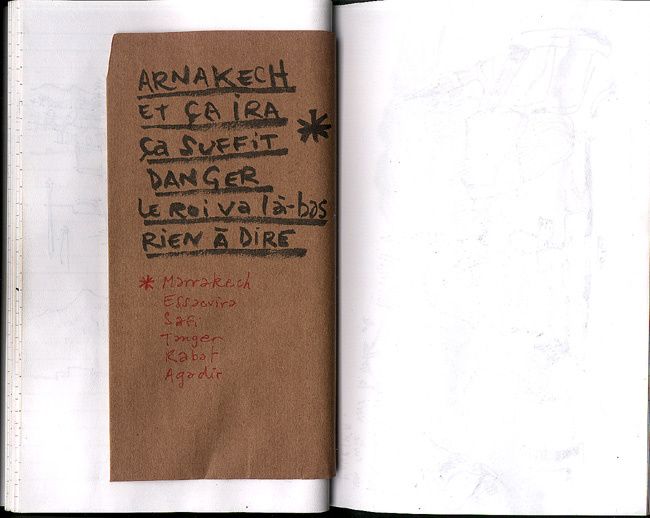 ARNAKECH
ET ÇA IRA
ÇA SUFFIT *
DANGER
LE ROI VA là-bas
RIEN À DIRE
* Marrakech
Essaouira
Safi
Tanger
Rabat
Agadir